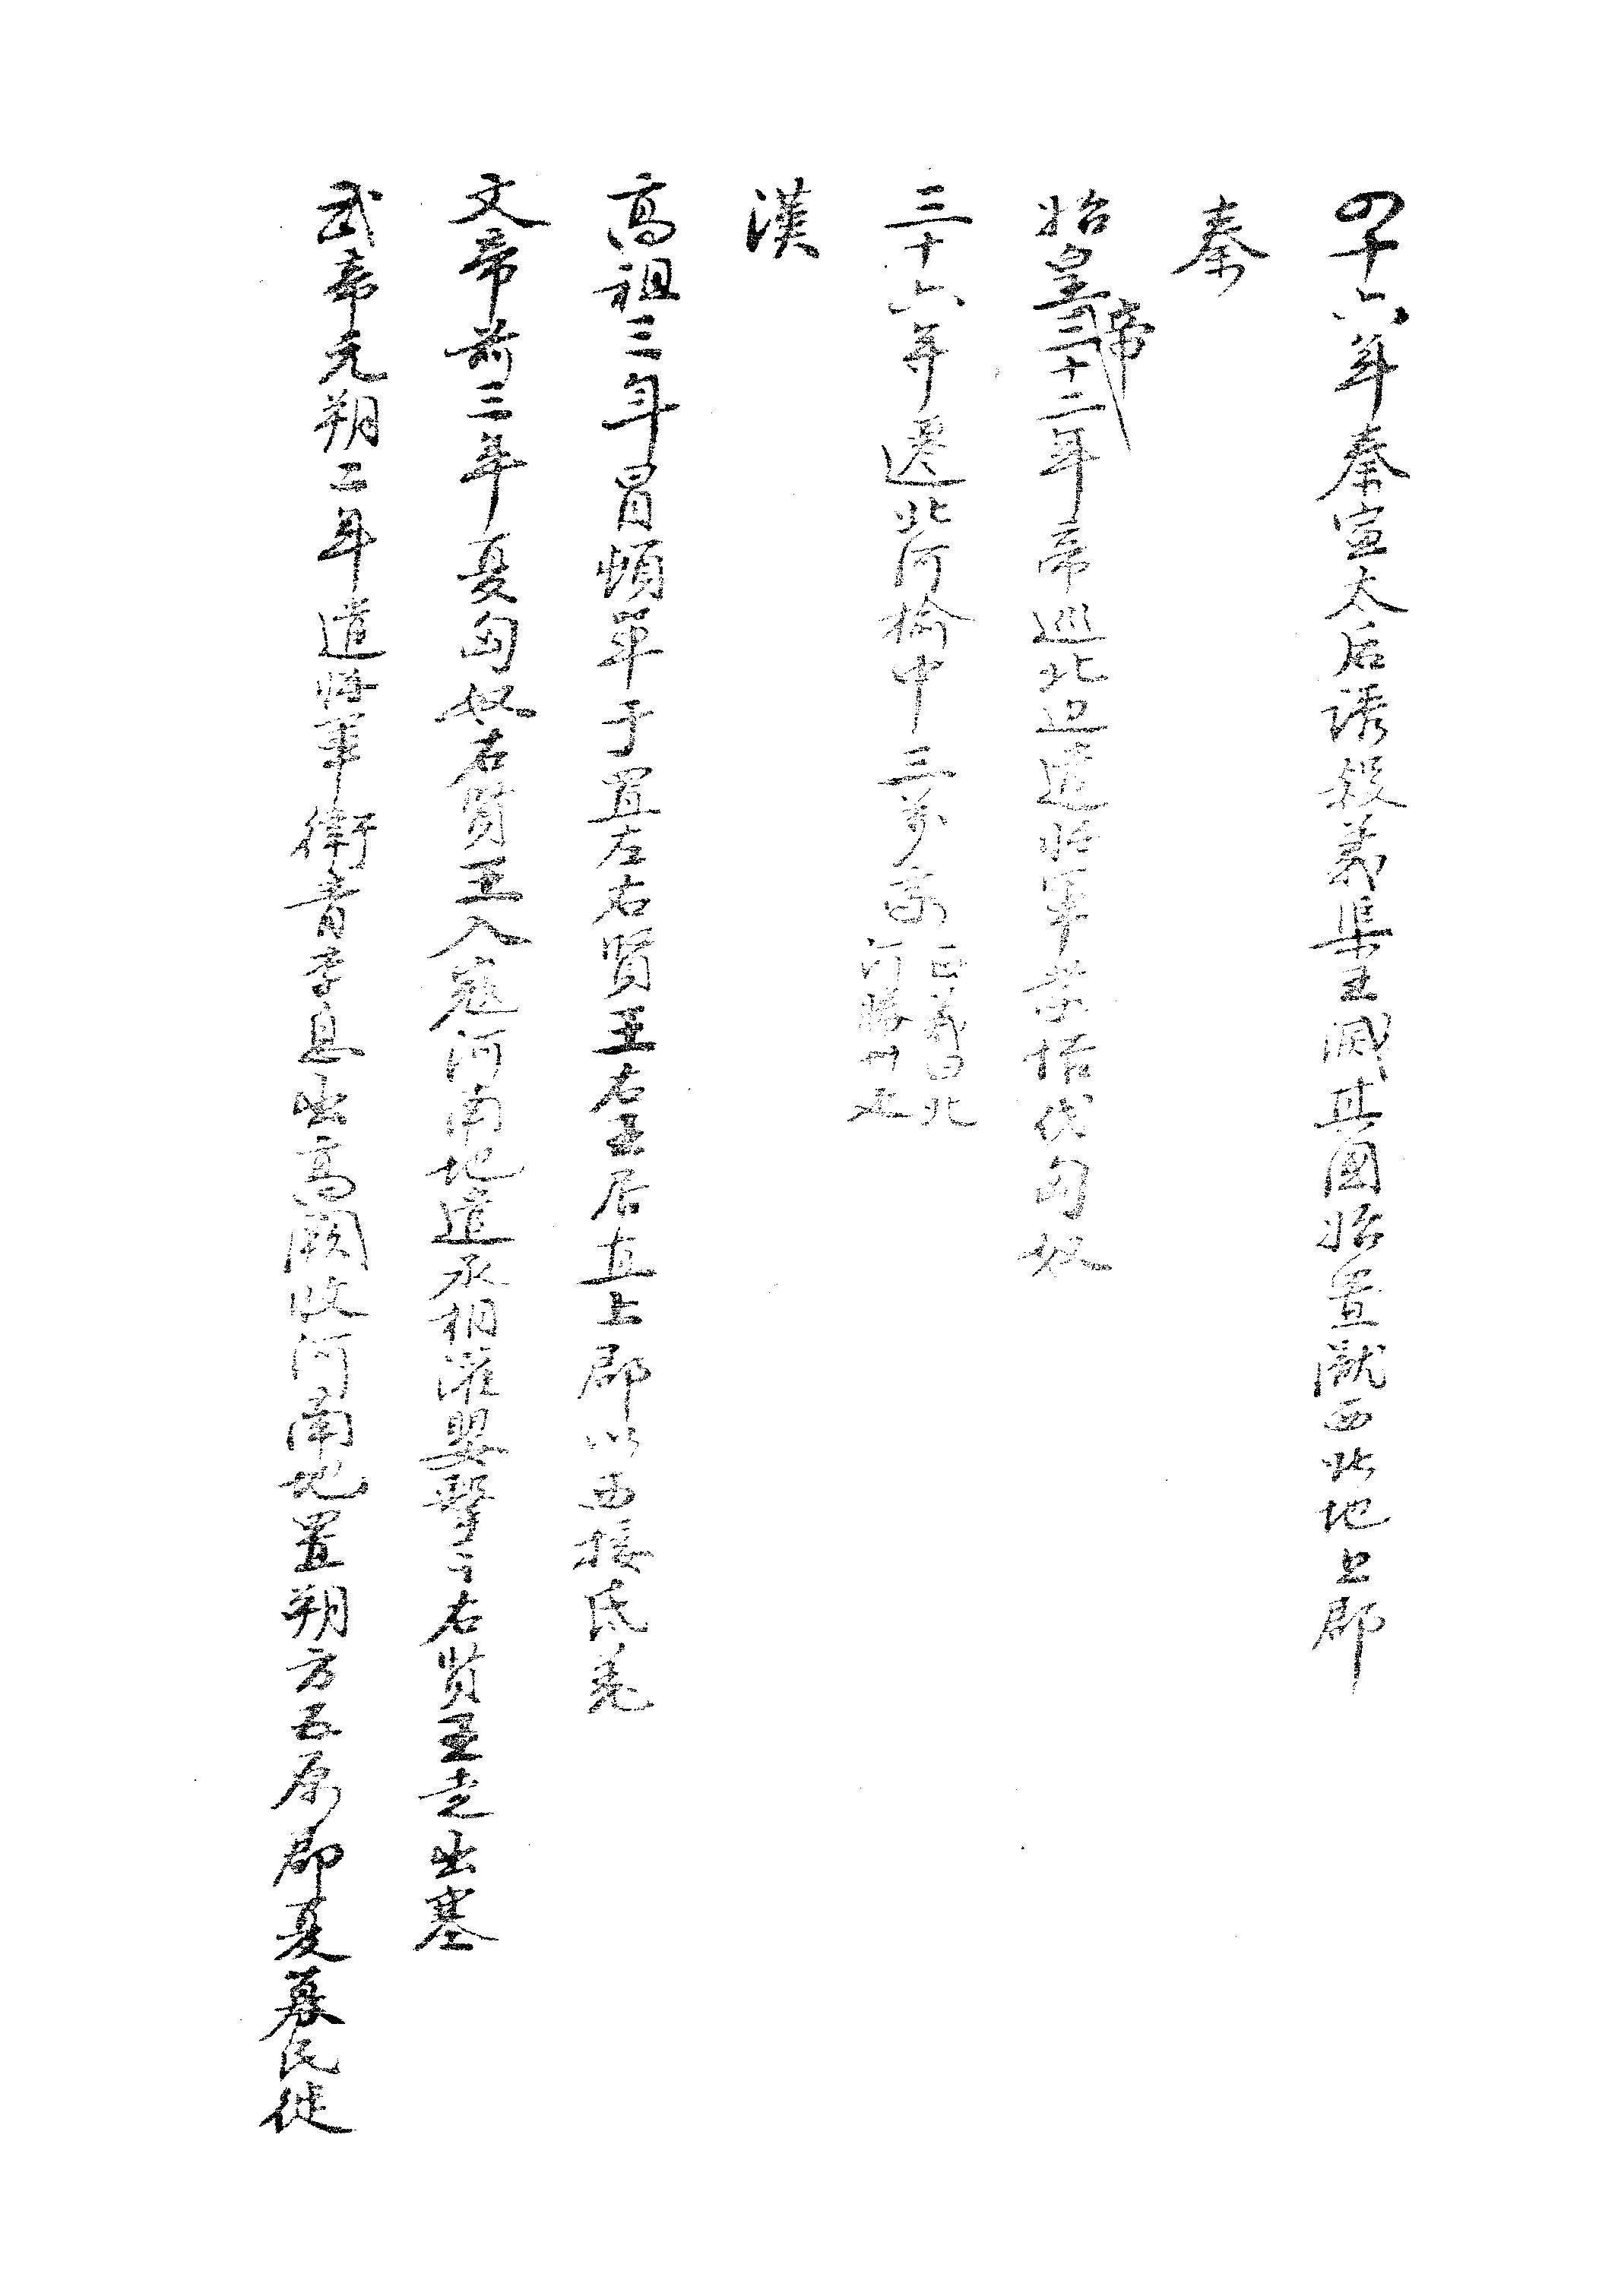 四十六年秦宣太后誘殺義渠王滅其國始置隴西北地上郡
秦
始皇帝三十二年帝巡北邊遣將軍蒙恬伐匈奴
三十六年遷北河榆中三萬家
正義曰北
河勝州也
漢
高祖三年冒頓單于置左右賢王右王居直上郡以西接氐羌
文帝前三年夏匈奴右賢王入寇河南地遣丞相灌嬰擊之右賢王走出塞
武帝元朔二年遣將軍衛青李息出高闕收河南地置朔方五原郡夏募民徙